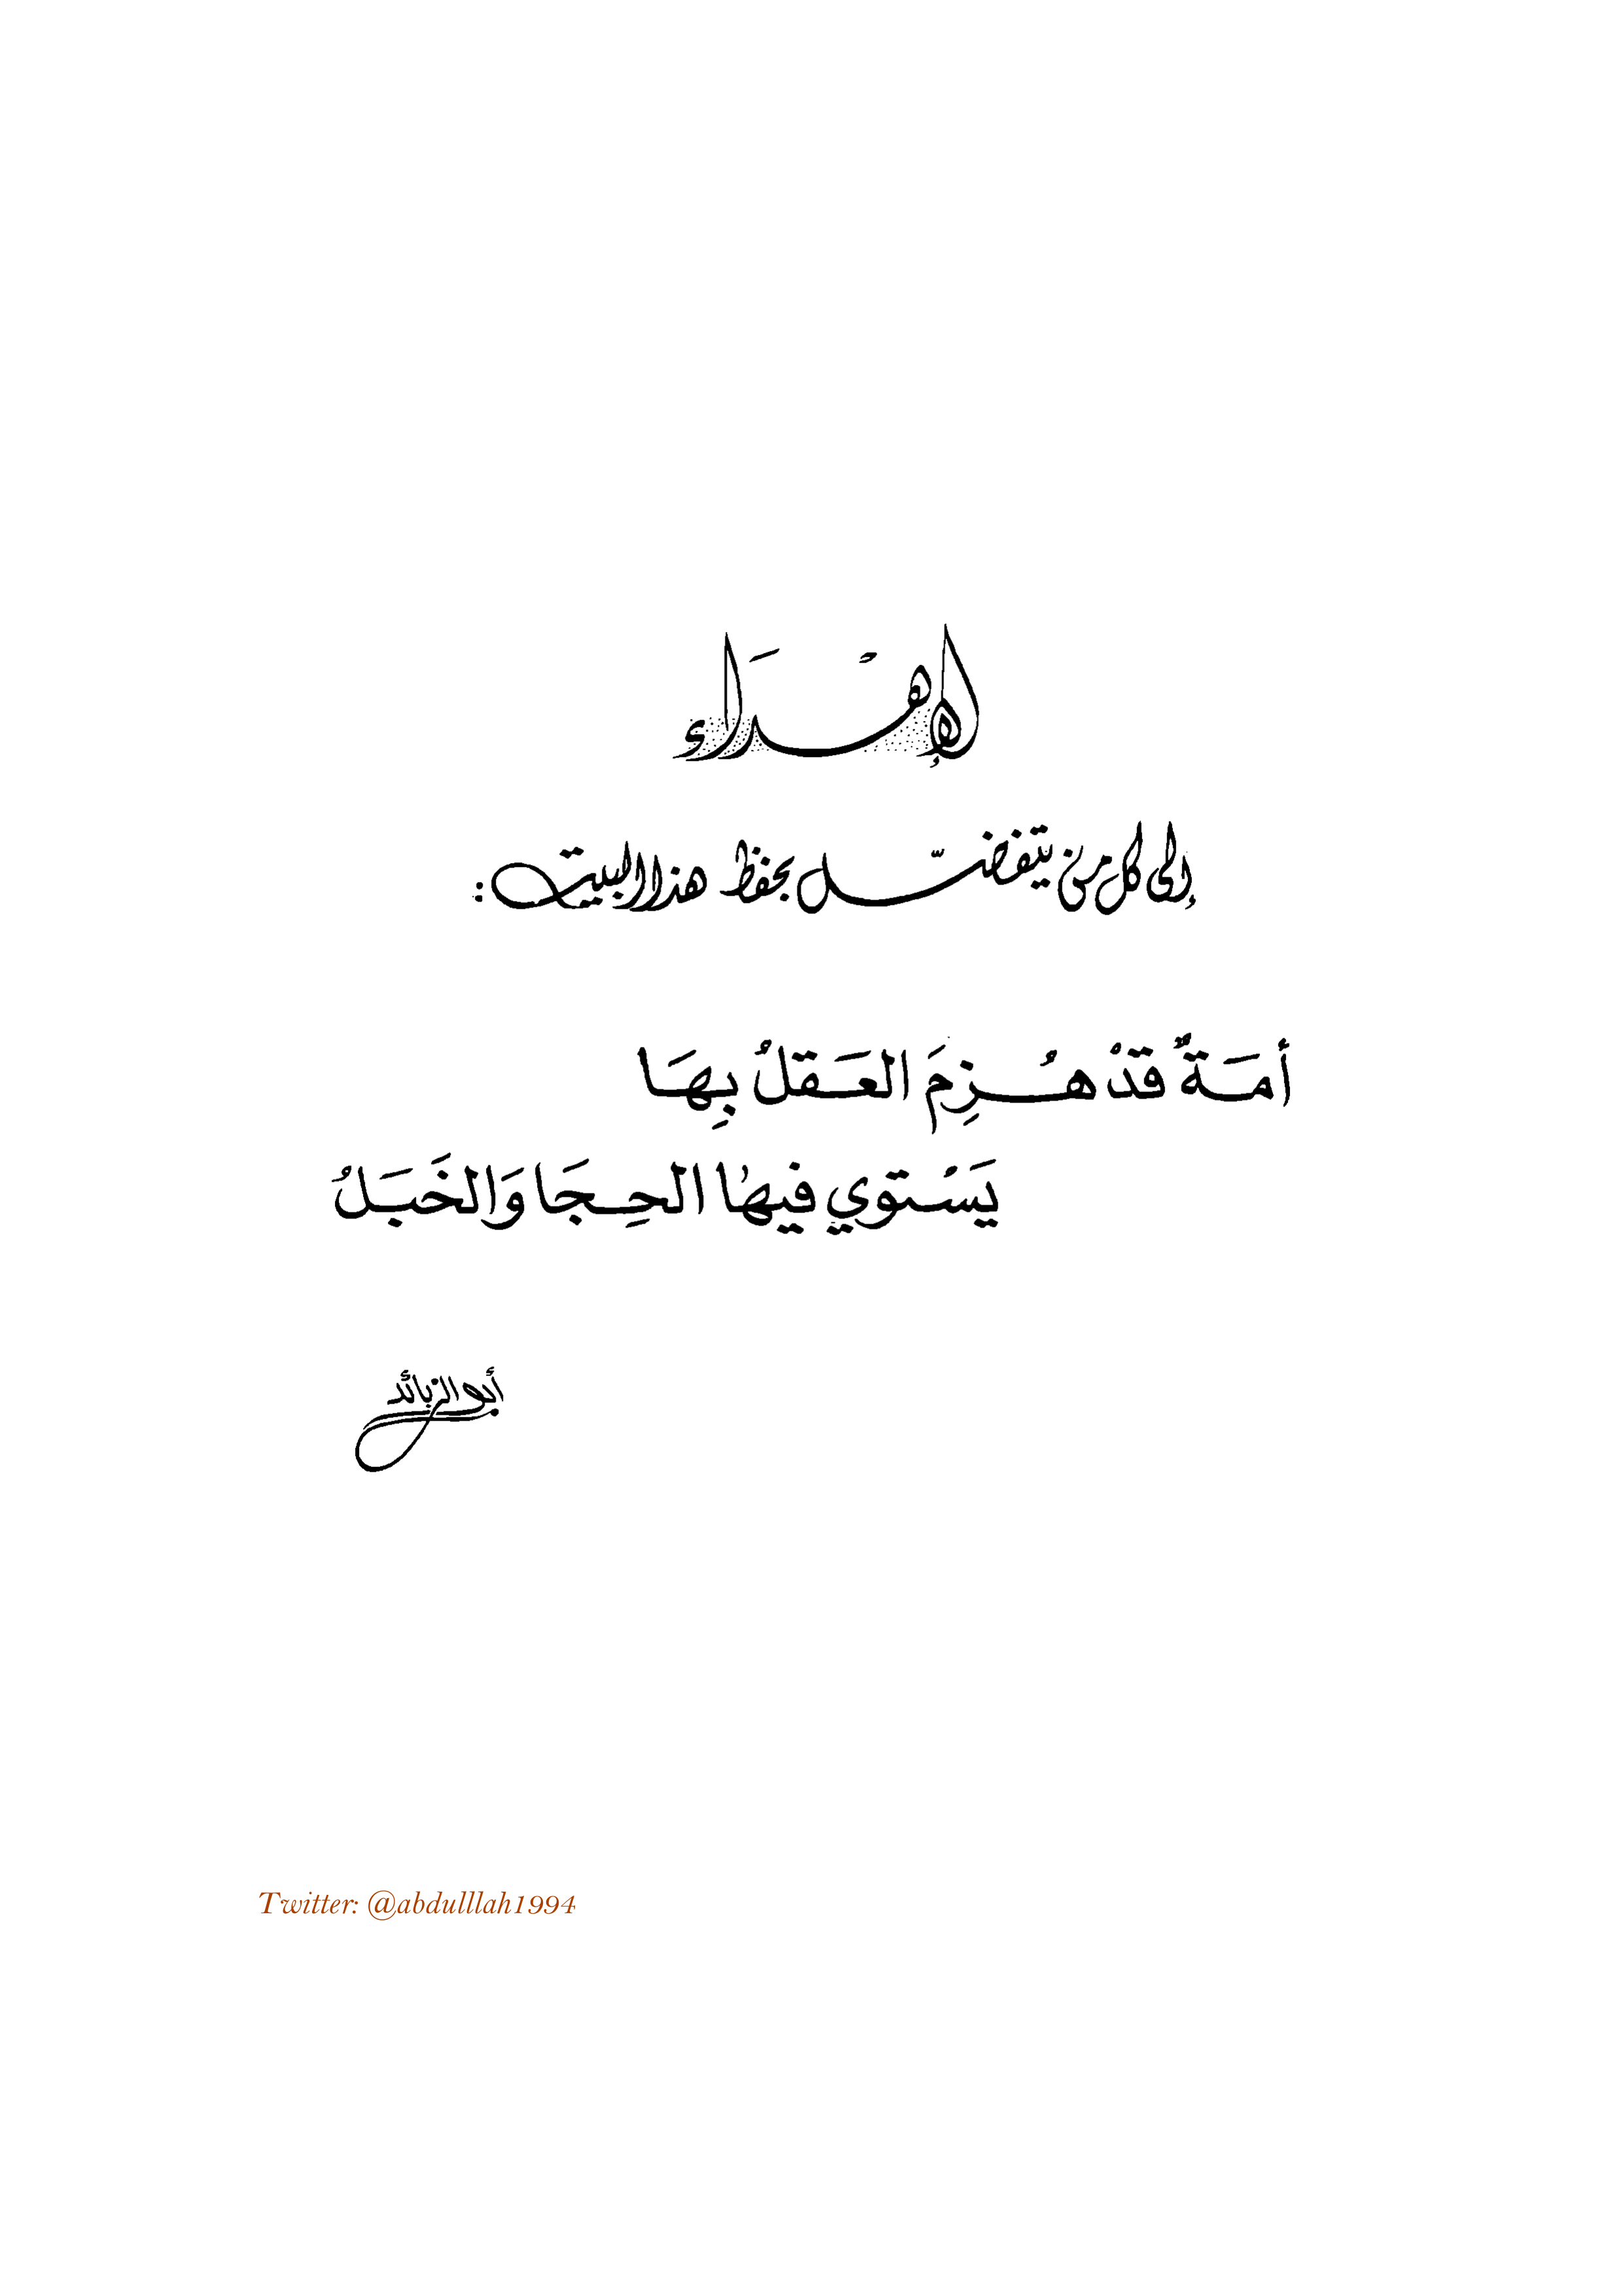 الإهْدَاء
إلى كل من يتفضّل بحفظ هذا البيت :
أمَةٌ قَدْ هُزِمَ العَقلُ بِهَا
يَسْتوي فيها الحِجَا وَالخَبَلُ
أبو الزبائد
Twitter: @abdulllah1994